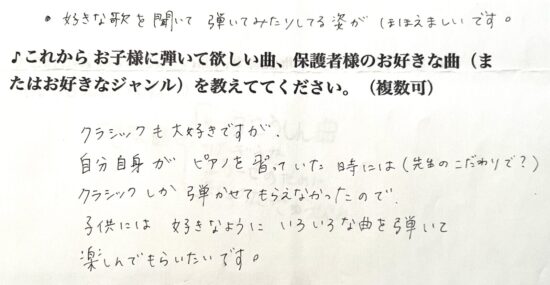 ・好きな歌を聞いて 弾いてみたりしてる姿が ほほえましいです。
♪これから お子様に弾いて欲しい曲、保護者様のお好きな曲（ま
たはお好きなジャンル）を教えててください。（複数可）
クラシックも大好きですが、
自分自身が ピアノを習っていた時には（先生のこだわりで？）
クラシックしか弾かせてもらえなかったので、
子供には 好きなように いろいろな曲を弾いて
楽しんでもらいたいです。